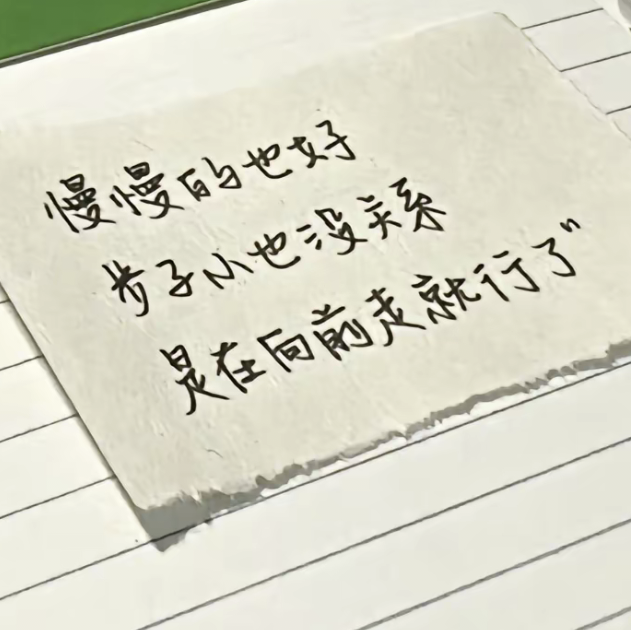 慢慢的也好
步子小也没关系
是在向前走就行了”